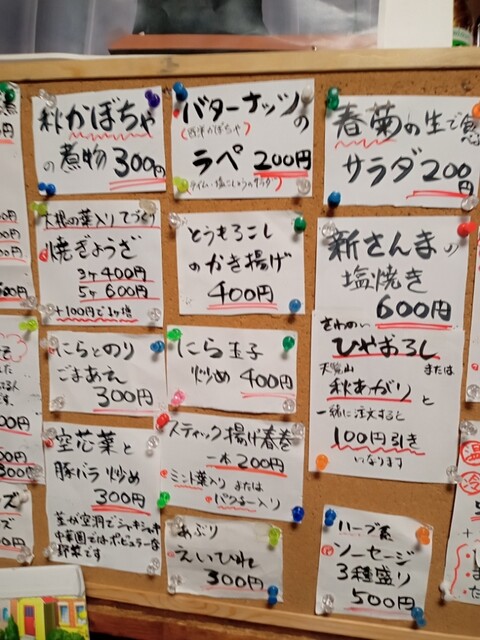 秋かぼちゃ
の煮物 300円
大根の葉入り てづくり
焼ぎょうざ
3ヶ 400円
5ヶ 600円
+100円で1ヶ増
にらとのり
ごまあえ
300円
空芯菜と
豚バラ炒め
300円
茎が空洞でシャキシャキ
中華圏ではポピュラーな
野菜です
バターナッツの
(西洋かぼちゃ)
ラペ 200円
(タイム・塩こしょうのサラダ)
とうもろこし
のかき揚げ
400円
にら玉子
炒め 400円
スティック揚げ春巻
一本200円
ミント葉入り または
パクチー入り
あぶり
えいひれ
300円
春菊の生で食
サラダ 200円
新さんまの
塩焼き
600円
ひやおろし
または
秋あがり と
一緒に注文すると
100円引き
になります
ハーブ系
ソーセージ
3種盛り
500円